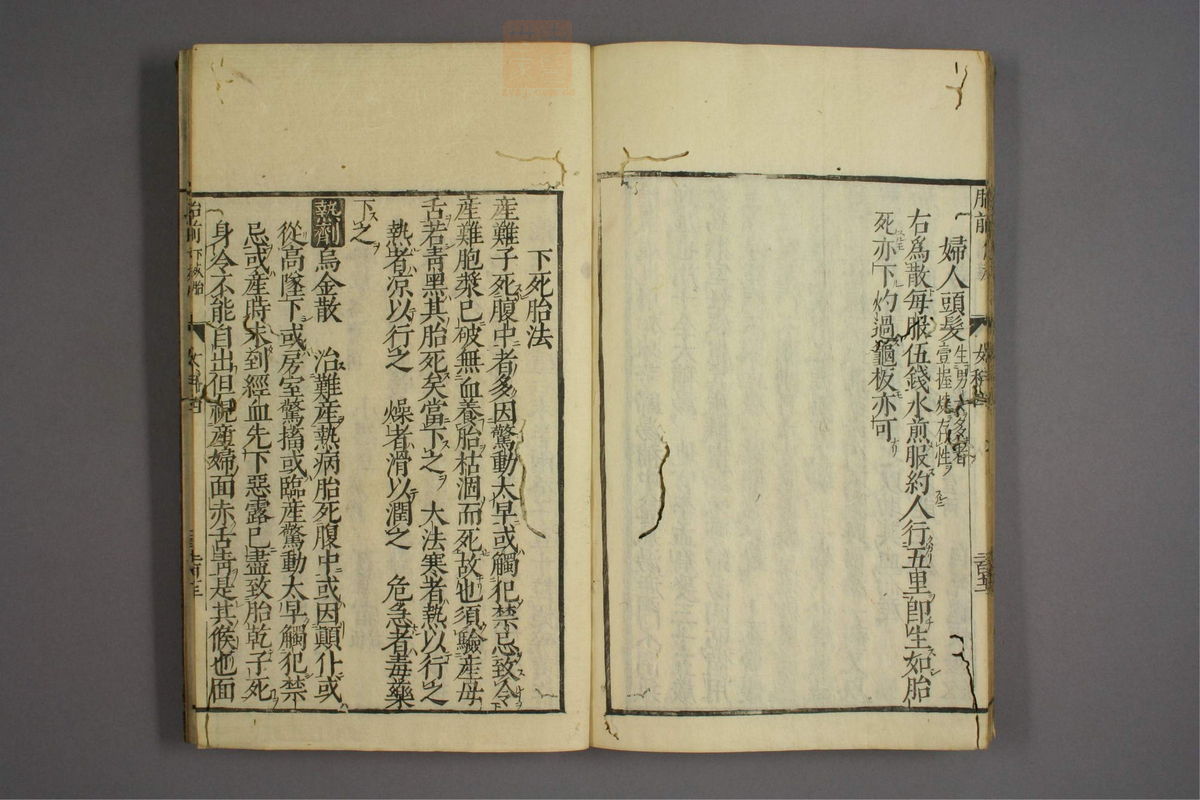 婦人頭髮生男女多者壹握燒存性
右爲散每服伍錢水煎服約人行五里卽生如胎
死亦下灼過龜板亦可
下死胎法
産難子死腹中者多因驚動太早或觸犯禁忌致令
産難胞漿已破無血養胎枯涸而死故也須驗産母
舌若靑黑其胎死矣當下之 大法寒者熱以行之
熱者凉以行之 燥者滑以潤之 危急者毒藥
下之
熱劑烏金散 治難産熱病胎死腹中或因顛仆或
從高墜下或房室驚搐或臨産驚動太早觸犯禁
忌或産時未到經血先下惡露已盡致胎乾子死
身冷不能自出但視産婦面赤舌靑是其候也面
胎前